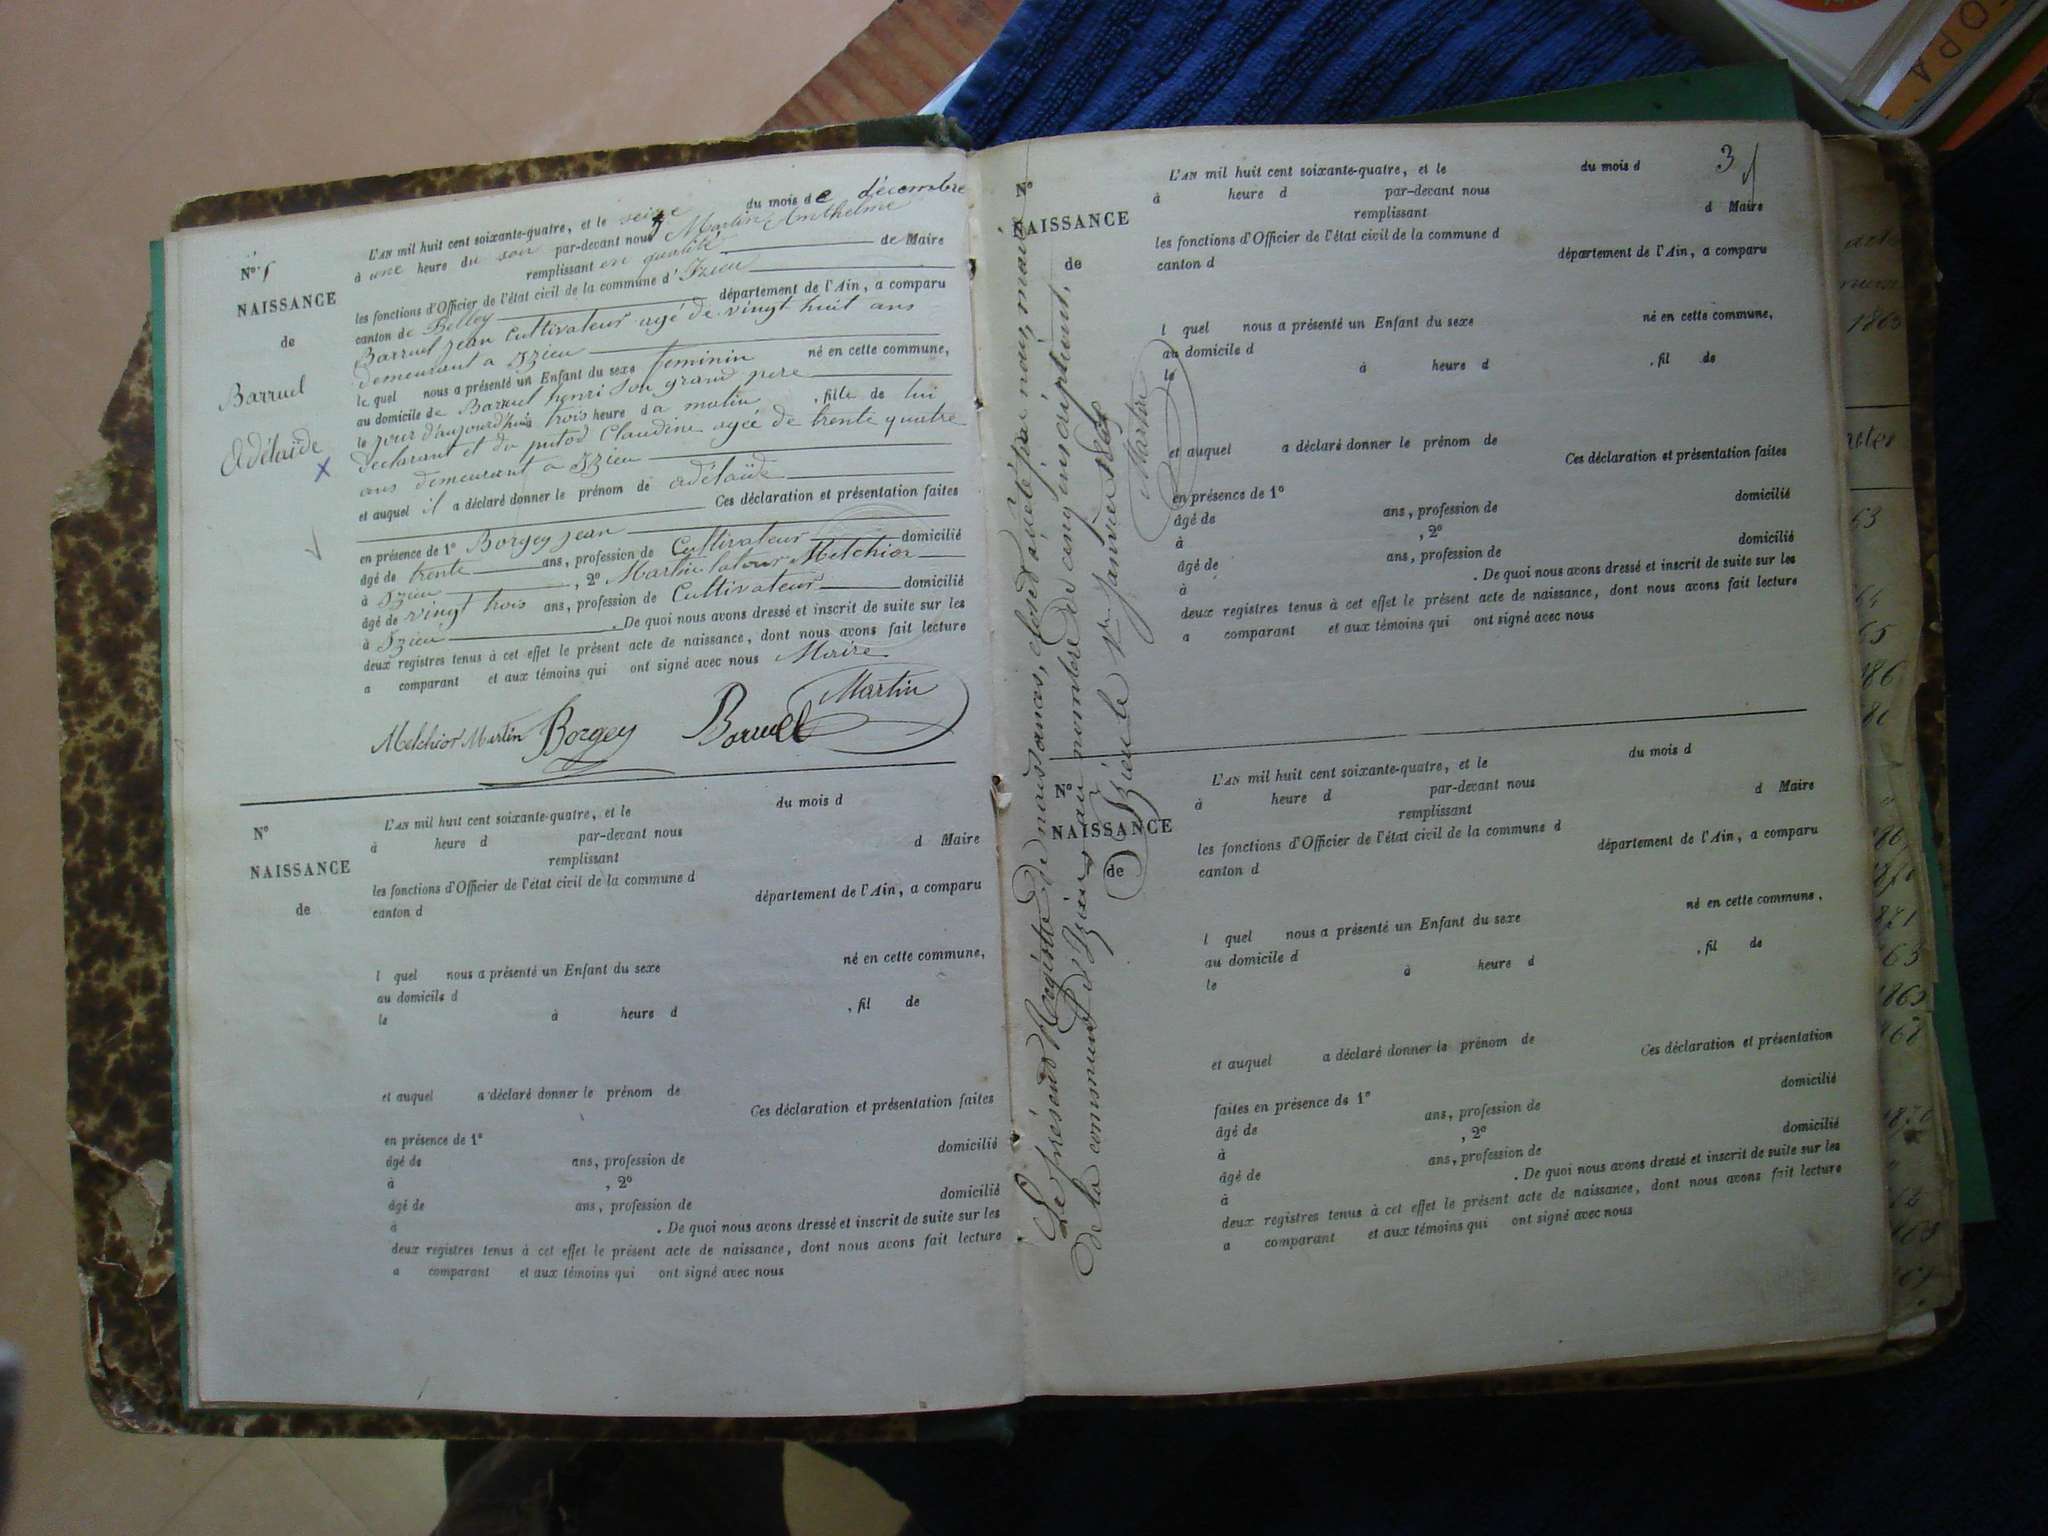 L'AN mil huit cent soixante-quatre, et le seize du mois de décembre
à une heure du soir par-devant nous Martin Anthelme
remplissant en qualité de Maire
les fonctions d'Officier de l'état civil de la commune d'Izieu
canton de Belley département de l'Ain, a comparu
Barruel jean Cultivateur agé de vingt huit ans
demeurant a Izieu
le quel nous a présenté un Enfant du sexe feminin né en cette commune,
au domicile de Barruel henri son grand pere
le jour d'aujourd'hui à trois heure du matin, fille de lui
declarant et de putod Claudine agée de trente quatre
ans demeurant a Izieu
et auquel il a déclaré donner le prénom de adélaïde
Ces déclaration et présentation faites
en présence de 1° Borgey jean domicilié
âgé de trente ans, profession de Cultivateur
à Izieu, 2° Martin latour Melchior
âgé de vingt trois ans, profession de Cultivateur domicilié
à Izieu. De quoi nous avons dressé et inscrit de suite sur les
deux registres tenus à cet effet le présent acte de naissance, dont nous avons fait lecture
a comparant et aux témoins qui ont signé avec nous Maire
Melchior Martin Borgey Barruel Martin
N°
NAISSANCE
de
Barruel
Adélaïde
x
N°
NAISSANCE
de
L'AN mil huit cent soixante-quatre, et le du mois d
à heure d par-devant nous
remplissant d Maire
les fonctions d'Officier de l'état civil de la commune d
canton d département de l'Ain, a comparu
l quel nous a présenté un Enfant du sexe né en cette commune,
au domicile d
le à heure d , fil de
et auquel a déclaré donner le prénom de
Ces déclaration et présentation faites
en présence de 1° domicilié
âgé de ans, profession de
à , 2°
âgé de ans, profession de domicilié
à . De quoi nous avons dressé et inscrit de suite sur les
deux registres tenus à cet effet le présent acte de naissance, dont nous avons fait lecture
a comparant et aux témoins qui ont signé avec nous
3
N°
NAISSANCE
de
L'AN mil huit cent soixante-quatre, et le du mois d
à heure d par-devant nous
remplissant d Maire
les fonctions d'Officier de l'état civil de la commune d
canton d département de l'Ain, a comparu
l quel nous a présenté un Enfant du sexe né en cette commune,
au domicile d
le à heure d , fil de
et auquel a déclaré donner le prénom de
Ces déclaration et présentation faites
en présence de 1° domicilié
âgé de ans, profession de
à , 2°
âgé de ans, profession de domicilié
à . De quoi nous avons dressé et inscrit de suite sur les
deux registres tenus à cet effet le présent acte de naissance, dont nous avons fait lecture
a comparant et aux témoins qui ont signé avec nous
Le présent Registre de naissances, clos et arrêté par nous, maire
de la commune d'Izieu au nombre de cinq inscriptions,
Izieu le 1er janvier 1865
Martin
N°
NAISSANCE
de
L'AN mil huit cent soixante-quatre, et le du mois d
à heure d par-devant nous
remplissant d Maire
les fonctions d'Officier de l'état civil de la commune d
canton d département de l'Ain, a comparu
l quel nous a présenté un Enfant du sexe né en cette commune,
au domicile d
le à heure d , fil de
et auquel a déclaré donner le prénom de
Ces déclaration et présentation
faites en présence de 1° domicilié
âgé de ans, profession de
à , 2°
âgé de ans, profession de domicilié
à . De quoi nous avons dressé et inscrit de suite sur les
deux registres tenus à cet effet le présent acte de naissance, dont nous avons fait lecture
a comparant et aux témoins qui ont signé avec nous